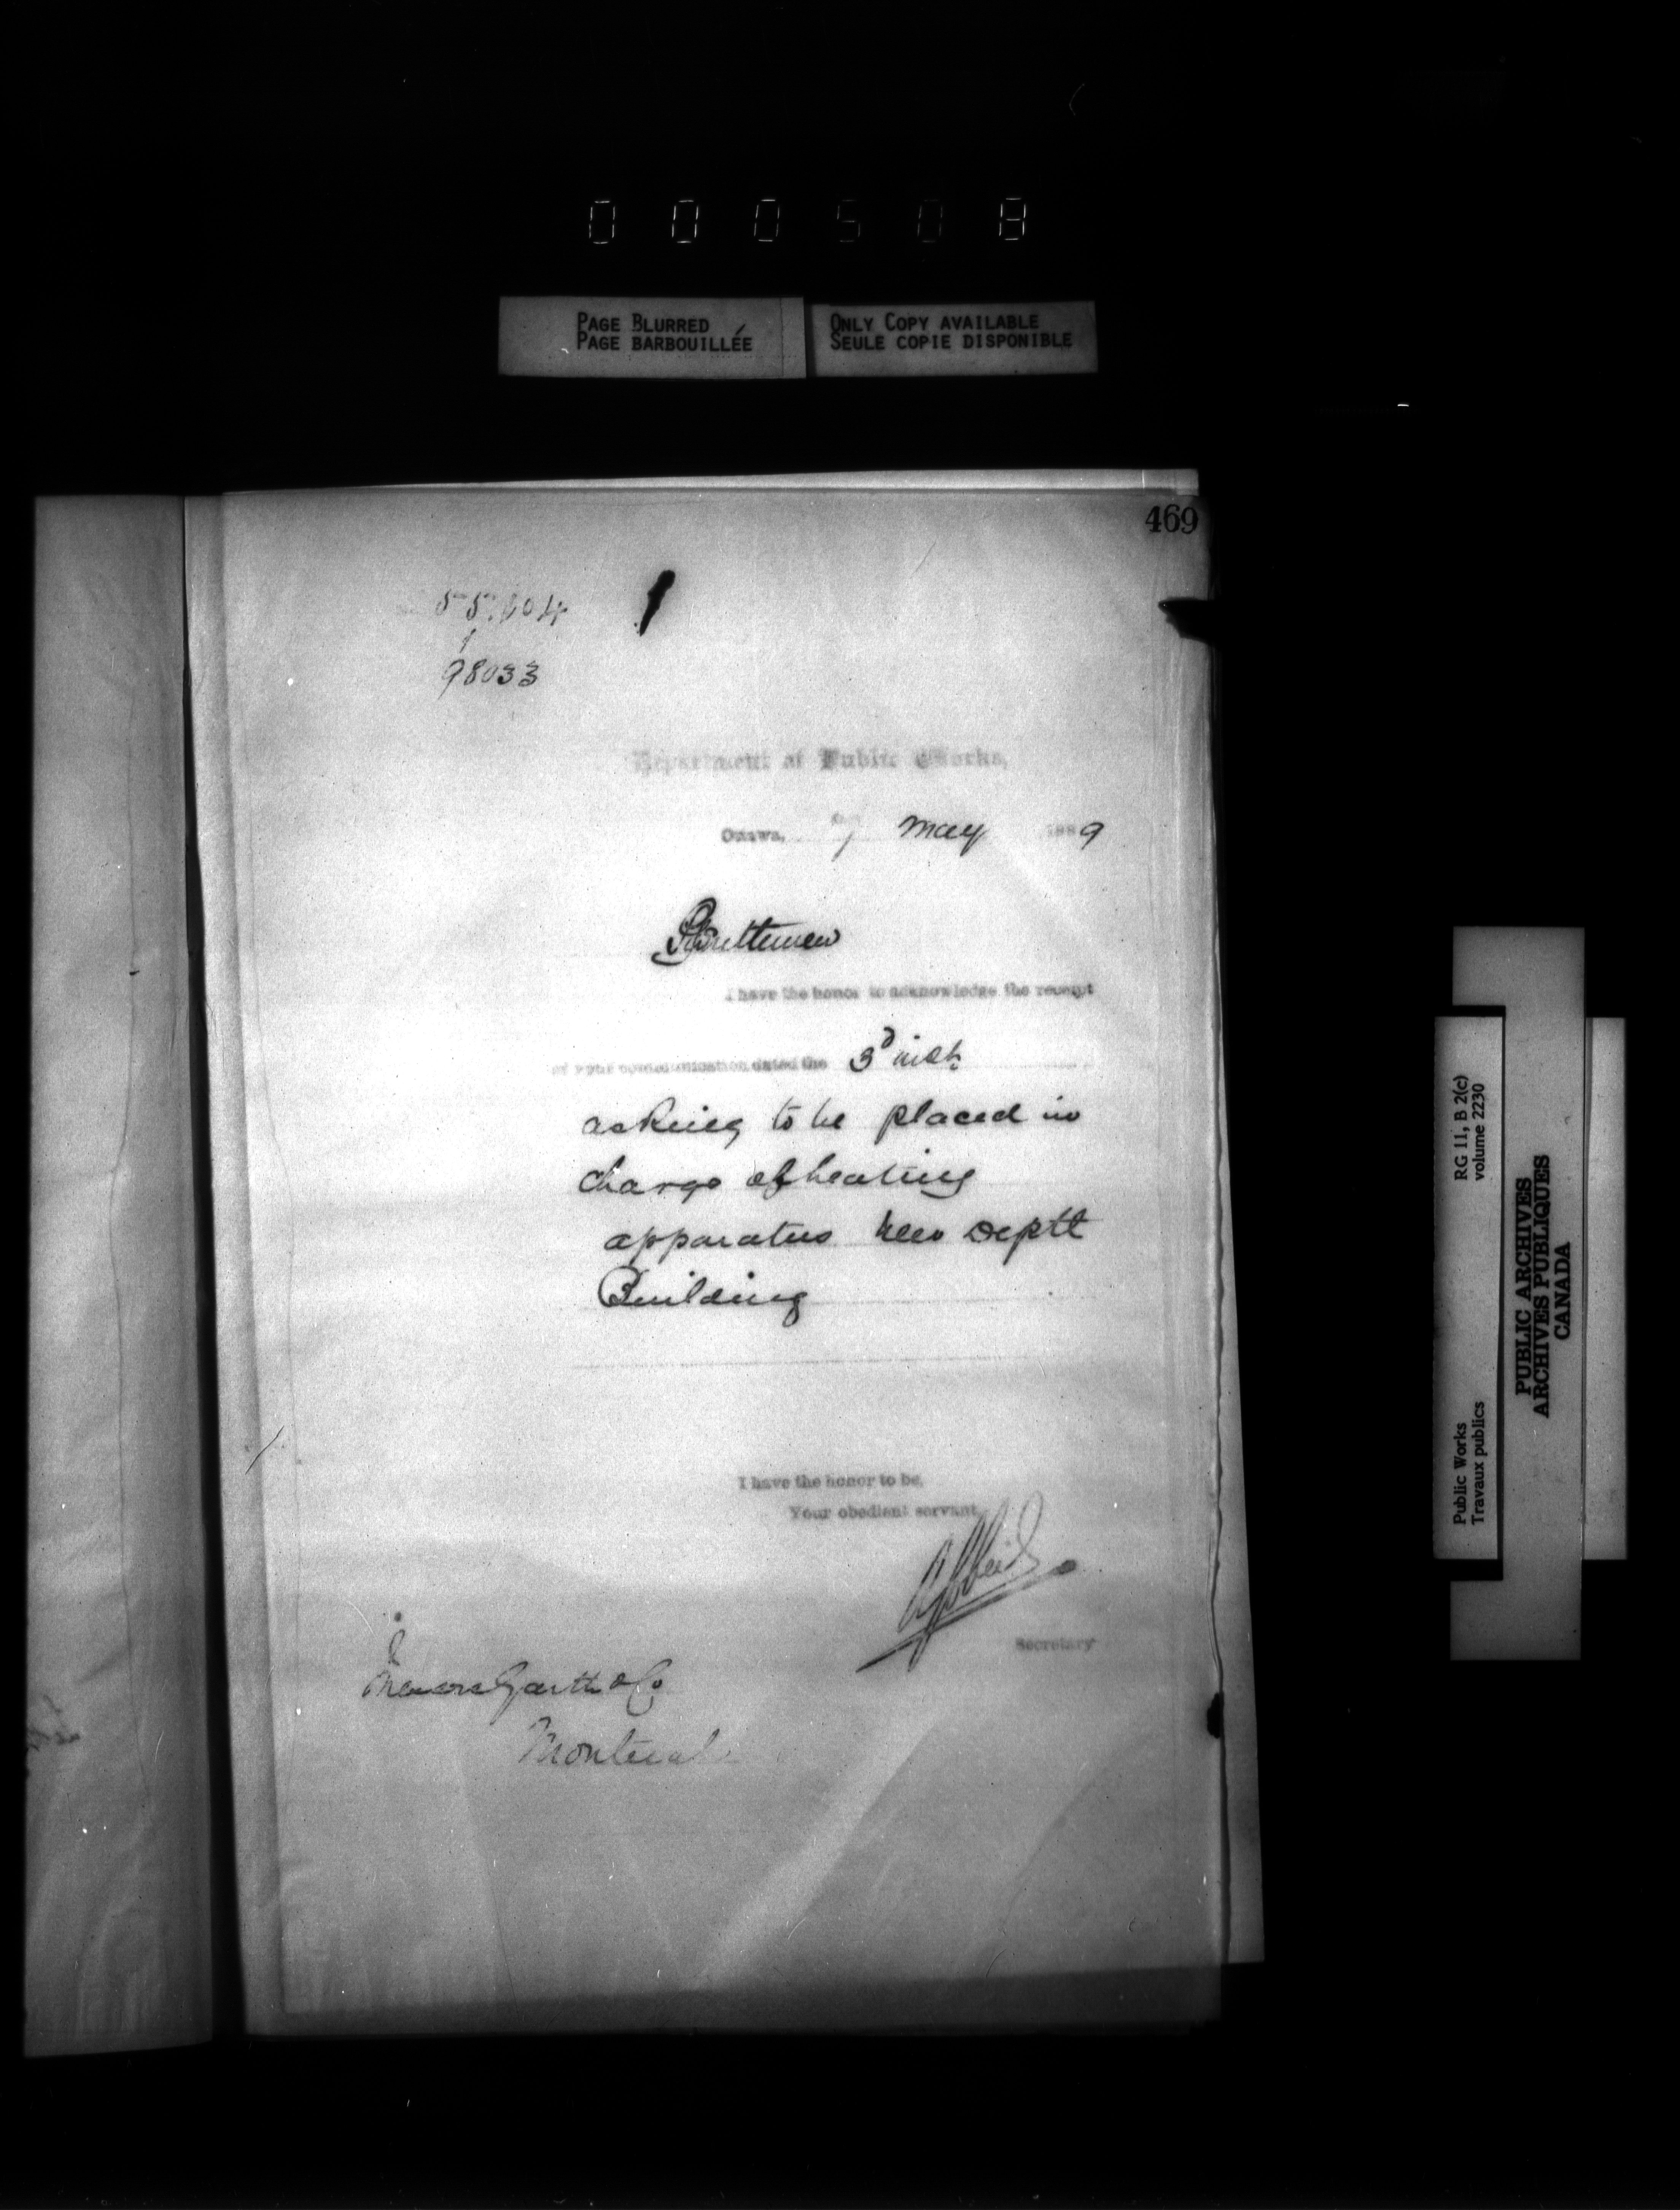 000508
PAGE BLURRED
PAGE BARBOUILLÉE
ONLY COPY AVAILABLE
SEULE COPIE DISPONIBLE
469
98033
Department of Public Works,
Ottawa, 7 May 1889
Gentlemen
I have the honor to acknowledge the receipt
of your communication dated the 3d inst.
asking to be placed in
charge of heating
apparatus New Deptl
Building
I have the honor to be,
Your obedient servant,
Secretary
Messrs Garth & Co
Montreal
Public Works
Travaux publics
RG 11, B 2(c)
volume 2230
PUBLIC ARCHIVES
ARCHIVES PUBLIQUES
CANADA